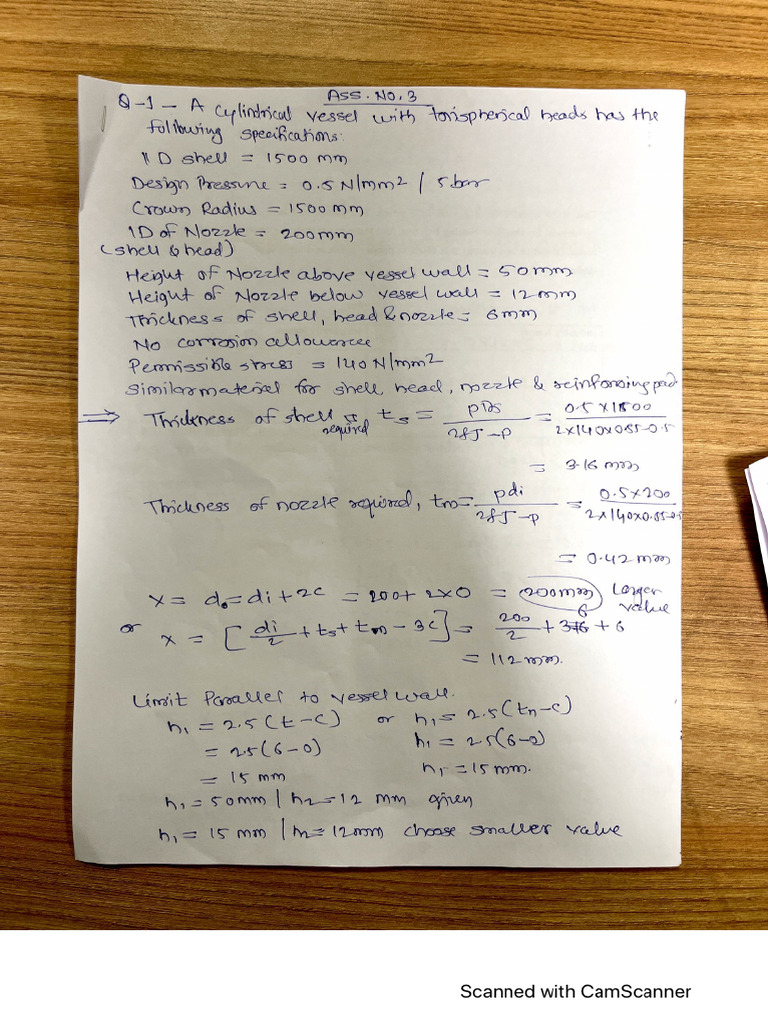 ASS. NO. 3
Q-1 - A cylindrical vessel with torispherical heads has the
following specifications:
ID shell = 1500 mm
Design Pressure = 0.5 N/mm2 / 5 bar
Crown Radius = 1500 mm
ID of Nozzle = 200mm
(shell & head)
Height of Nozzle above vessel wall = 50mm
Height of Nozzle below vessel wall = 12mm
Thickness of shell, head & nozzle = 6mm
No corrosion allowance
Permissible stress = 140 N/mm2
Similar material for shell, head, nozzle & reinforcing pad
⇒ Thickness of shell required ts = pDs / 2fJ-p = 0.5 x 1500 / 2x140x0.85-0.5
= 3.16 mm
Thickness of nozzle required, tn = pdi / 2fJ-p = 0.5x200 / 2x140x0.85-0.5
= 0.42 mm
x = do = di + 2c = 200 + 2x0 = 200mm Larger value
or x = [di/2 + ts + tn - 3c] = 200/2 + 6 + 6
= 112 mm.
Limit Parallel to vessel wall.
h1 = 2.5(t-c) or h1 = 2.5(tn-c)
= 2.5(6-0) h1 = 2.5(6-0)
= 15 mm h1 = 15 mm.
h1 = 50mm / h2 = 12 mm given
h1 = 15 mm / h2 = 12mm choose smaller value
Scanned with CamScanner